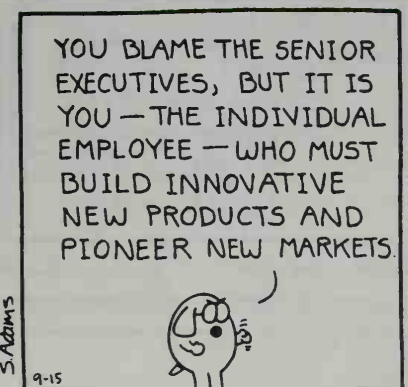 YOU BLAME THE SENIOR
EXECUTIVES, BUT IT IS
YOU — THE INDIVIDUAL
EMPLOYEE — WHO MUST
BUILD INNOVATIVE
NEW PRODUCTS AND
PIONEER NEW MARKETS.
S. Adams
9-15